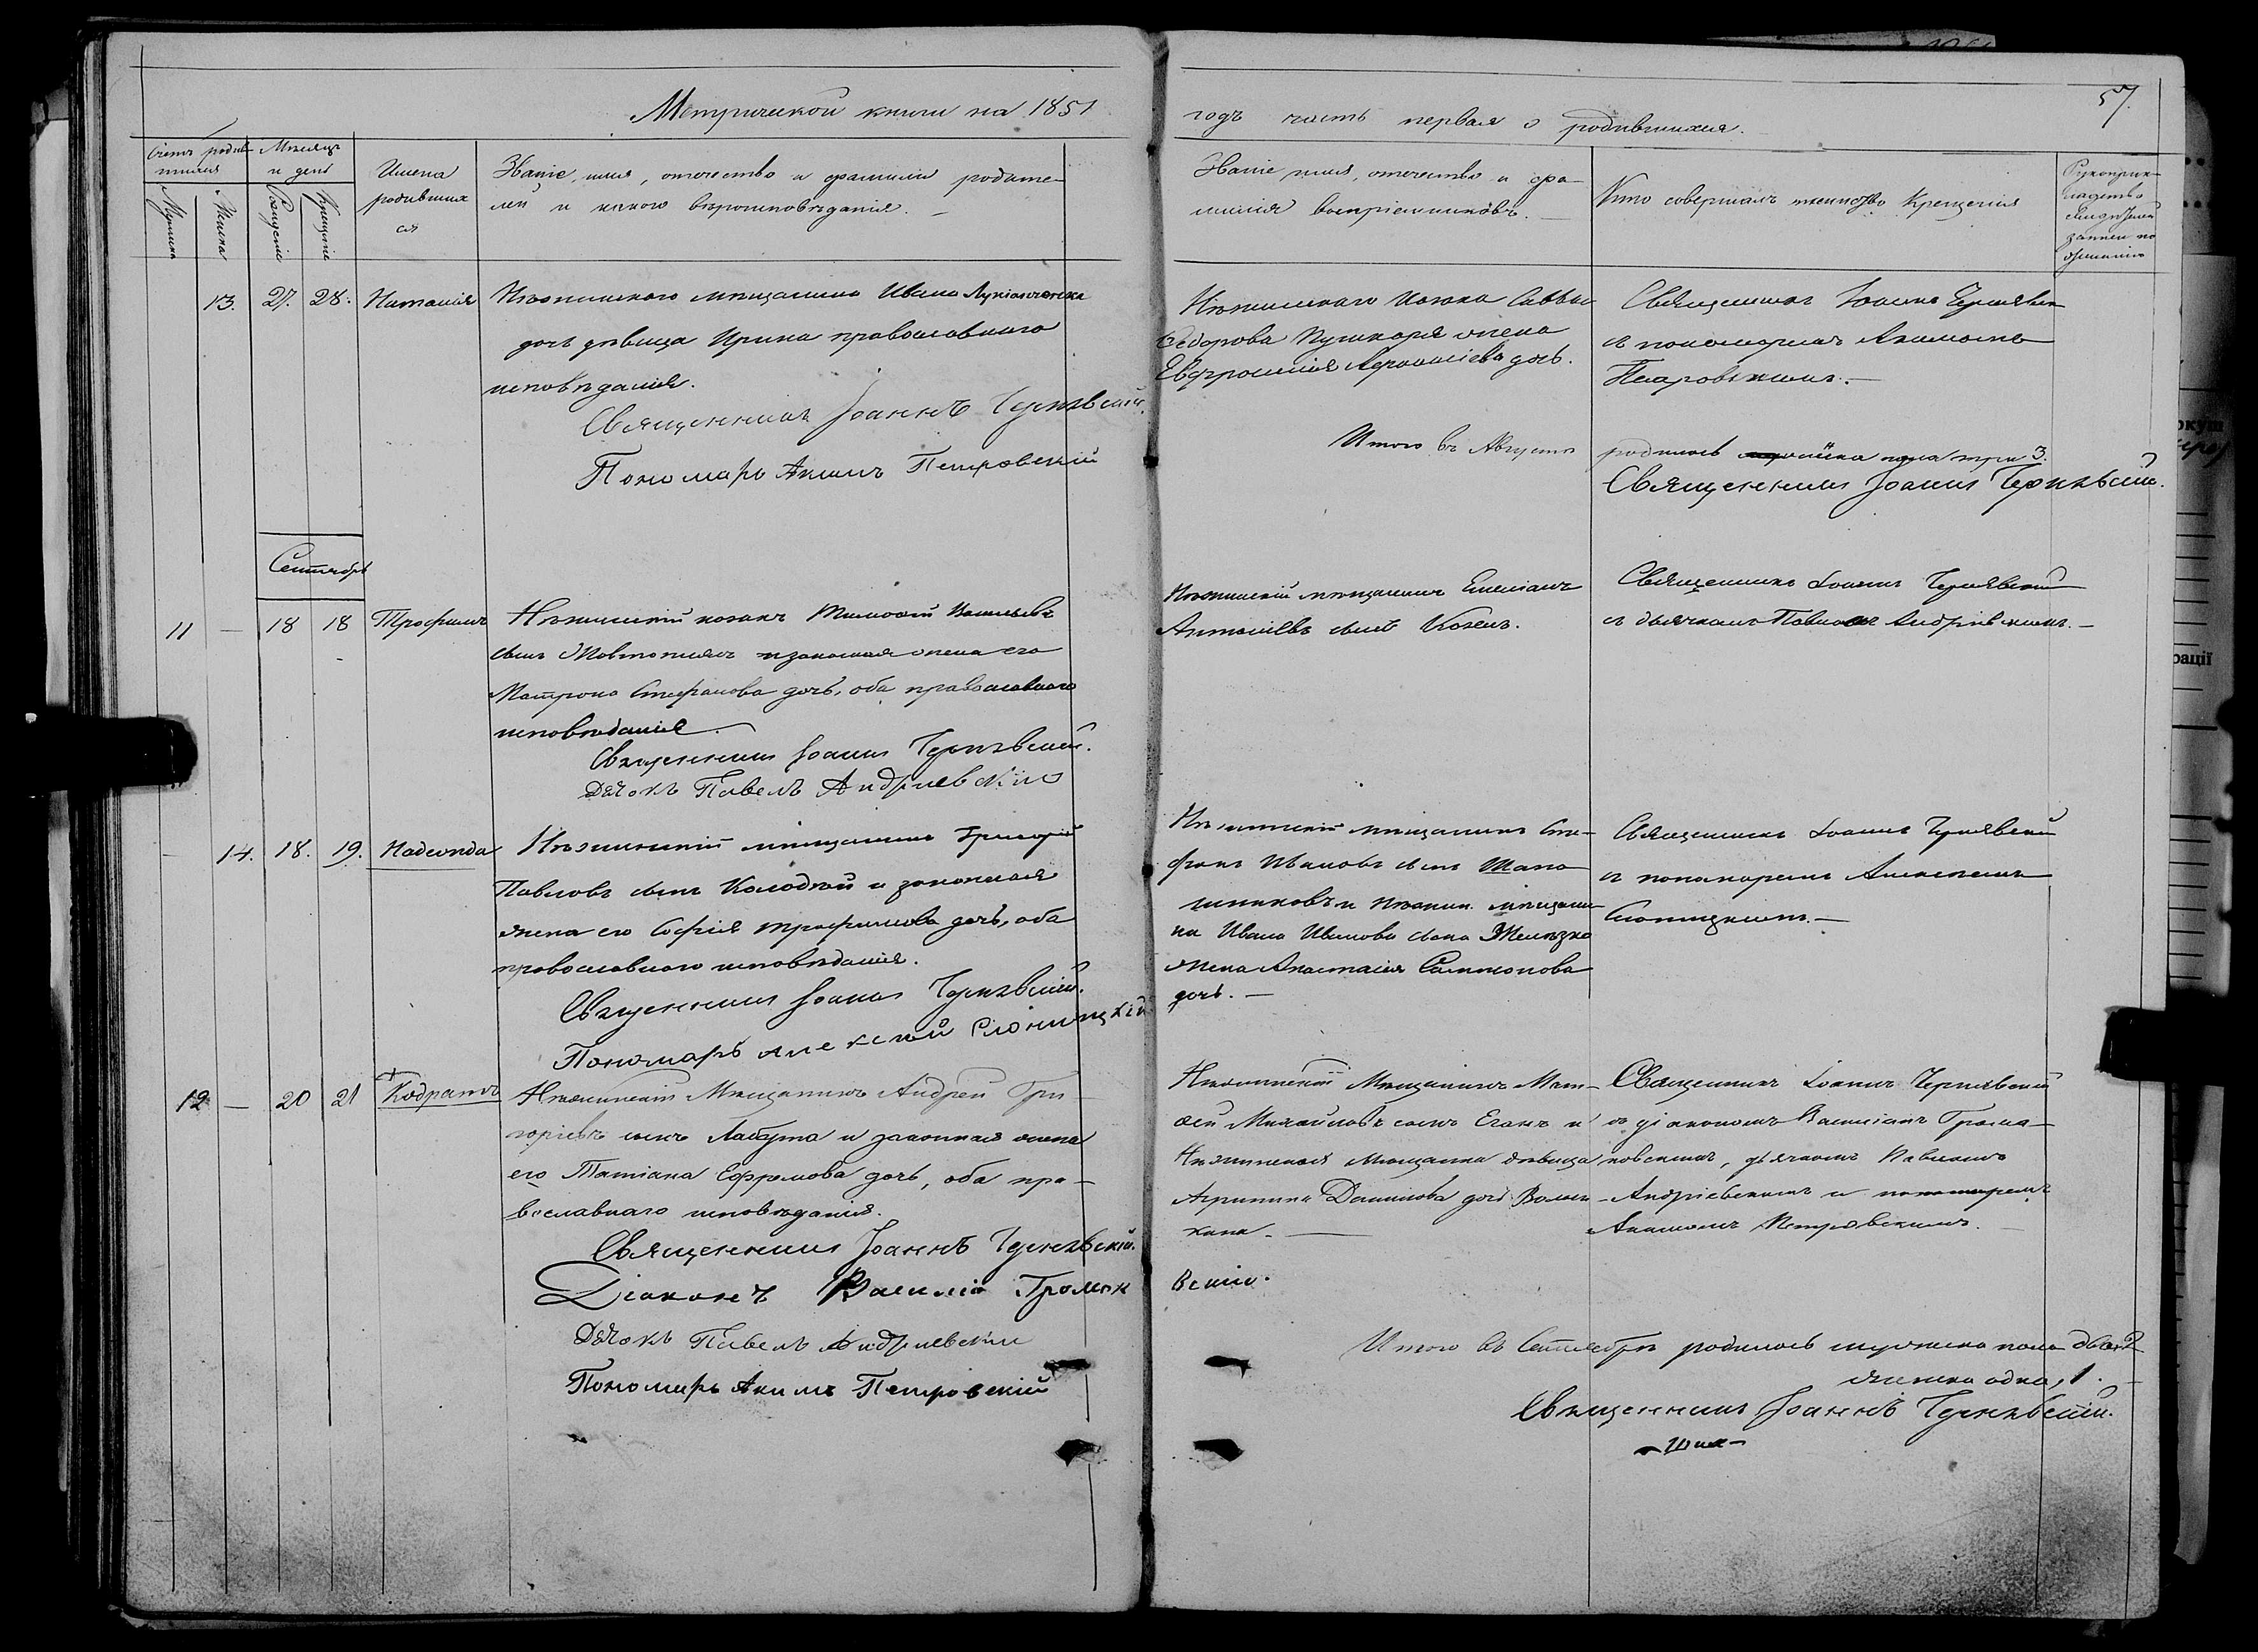 Метрической книги на 1851
годъ часть первая о родившихся.
57.
Счетъ родив-
шихся
Мѣсяцъ
и день
Имена
родивших
ся
Мужеска
Женска
Рожденіе
Крещеніе
Званіе, имя, отечество и фамилія родите-
лей и какого вѣроисповѣданія. –
Званіе, имя, отечество и фа-
милія воспріемниковъ. –
Кто совершалъ таинство крещенія
Рукоприк-
ладство
записи по
желанію
13. 27. 28. Наталія
Нѣжинскаго мѣщанина Ивана Лукіанченка
дочь дѣвица Ирина православнаго
исповѣданія.
Священникъ Іоаннъ Чернявскій.
Пономарь Акимъ Петровскій
Нѣжинскаго козака Саввы
Федорова Пушкаря жена
Евфросинія дочь.
Священникъ Іоаннъ Чернявскій
съ пономаремъ Акимомъ
Петровскимъ. –
Итого въ Августѣ родилось женска пола три 3.
Священникъ Іоаннъ Чернявскій.
Сентябрь
11 – 18 18 Трофимъ
Нѣжинскій козакъ Тимофей Васильевъ
сынъ и законная жена его
Матрона Стефанова дочь, оба православнаго
исповѣданія.
Священникъ Іоаннъ Чернявскій.
Дячокъ Павелъ Андриевскій
Нѣжинскій мѣщанинъ Емеліанъ
Антоніевъ сынъ Козелъ.
Священникъ Іоаннъ Чернявскій
съ дьячкомъ Павломъ Андріевскимъ. –
– 14. 18. 19. Надежда
Нѣжинскій мѣщанинъ Григорій
Павловъ сынъ Колодкій и законная
жена его Софія Трофимова дочь, оба
православнаго исповѣданія.
Священникъ Іоаннъ Чернявскій.
Пономарь Алексѣй Слоницкій
Нѣжинскій мѣщанинъ Сте-
фанъ Ивановъ сынъ Шапо
шниковъ и Нѣжин. мѣщани-
на Ивана Иванова сына Желѣзка
жена Анастасія Сампсонова
дочь. –
Священникъ Іоаннъ Чернявскій
съ пономаремъ Алексѣемъ
Слоницкимъ. –
12 – 20 21 Кодратъ
Нѣжинскій Мѣщанинъ Андрей Гри
горіевъ сынъ Лабута и законная жена
его Татіана Ефремова дочь, оба пра-
вославнаго исповѣданія.
Священникъ Іоаннъ Чернявскій.
Діаконъ Василій Громак
вскій.
Дячокъ Павелъ Андриевскій
Пономарь Акимъ Петровскій
Нѣжинскій Мѣщанинъ Мат-
фей Михайловъ сынъ Еганъ и
Нѣжинская Мѣщанка дѣвица
Агрипина Данилова дочь Волын-
кина. –
Священникъ Іоаннъ Чернявскій
съ діакономъ Василіемъ Грома-
ковскимъ, дьячкомъ Павломъ
Андріевскимъ и пономаремъ
Акимомъ Петровскимъ. –
Итого въ Сентябрѣ родилось мужеска пола два 2
женска одна, 1.
Священникъ Іоаннъ Чернявскій.